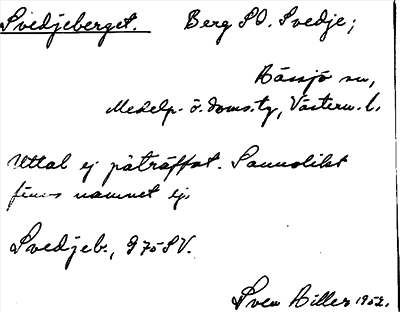 Svedjeberget. Berg SO. Svedje;
Hässjö sn,
Medelp. ö. doms.tg, Västern. l.
Uttal ej påträffat. Sannolikt
finns namnet ej.
Svedjeb., 975 SV.
Sven Hiller 1952.